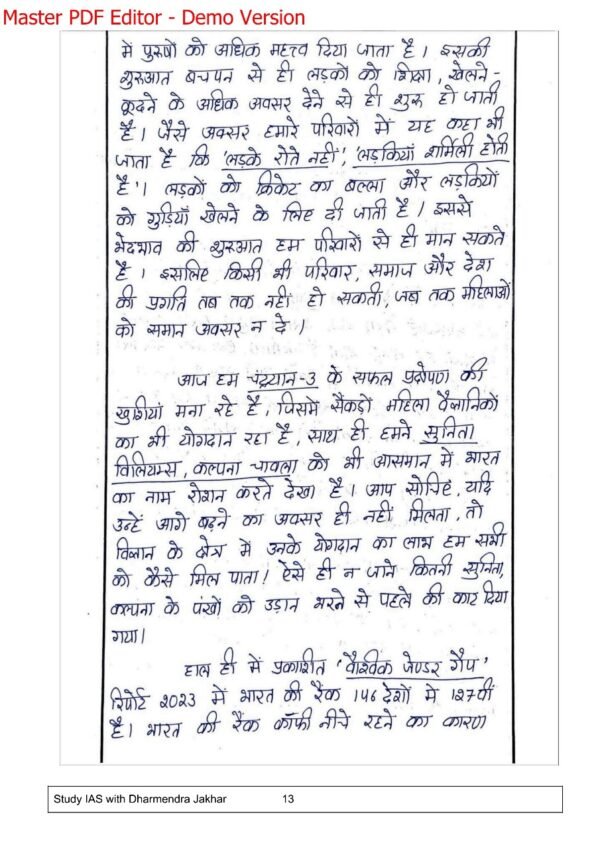 Master PDF Editor - Demo Version
मे पुरुषों को अधिक महत्त्व दिया जाता है। इसकी
शुरुआत बचपन से ही लड़कों को शिक्षा, खेलने-
कूदने के अधिक अवसर देने से ही शुरू हो जाती
है। जैसे अक्सर हमारे परिवारों में यह कहा भी
जाता है कि 'लड़के रोते नहीं', 'लड़कियाँ शर्मिली होती
है'। लड़कों को क्रिकेट का बल्ला और लड़कियों
को गुड़ियाँ खेलने के लिए दी जाती है। इससे
भेदभाव की शुरुआत हम परिवारों से ही मान सकते
है। इसलिए किसी भी परिवार, समाज और देश
की प्रगति तब तक नहीं हो सकती, जब तक महिलाओं
को समान अवसर न दे।
आज हम चंद्रयान-3 के सफल प्रक्षेपण की
खुशियां मना रहे है, जिसमें सैकड़ों महिला वैज्ञानिकों
का भी योगदान रहा है, साथ ही हमने सुनिता
विलियम्स, कल्पना चावला को भी आसमान में भारत
का नाम रोशन करते देखा है। आप सोचिए, यदि
उन्हें आगे बढ़ने का अवसर ही नहीं मिलता, तो
विज्ञान के क्षेत्र में उनके योगदान का लाभ हम सभी
को कैसे मिल पाता! ऐसे ही न जाने कितनी सुनिता,
कल्पना के पंखों को उड़ान भरने से पहले की काट दिया
गया।
हाल ही में प्रकाशीत 'वैश्विक जेण्डर गैप'
रिपोर्ट 2023 में भारत की रैंक 146 देशों में 127वीं
है। भारत की रैंक कॉफी नीचे रहने का कारण
Study IAS with Dharmendra Jakhar 13